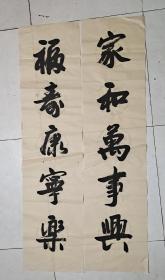 家和萬事興
福壽康寧樂